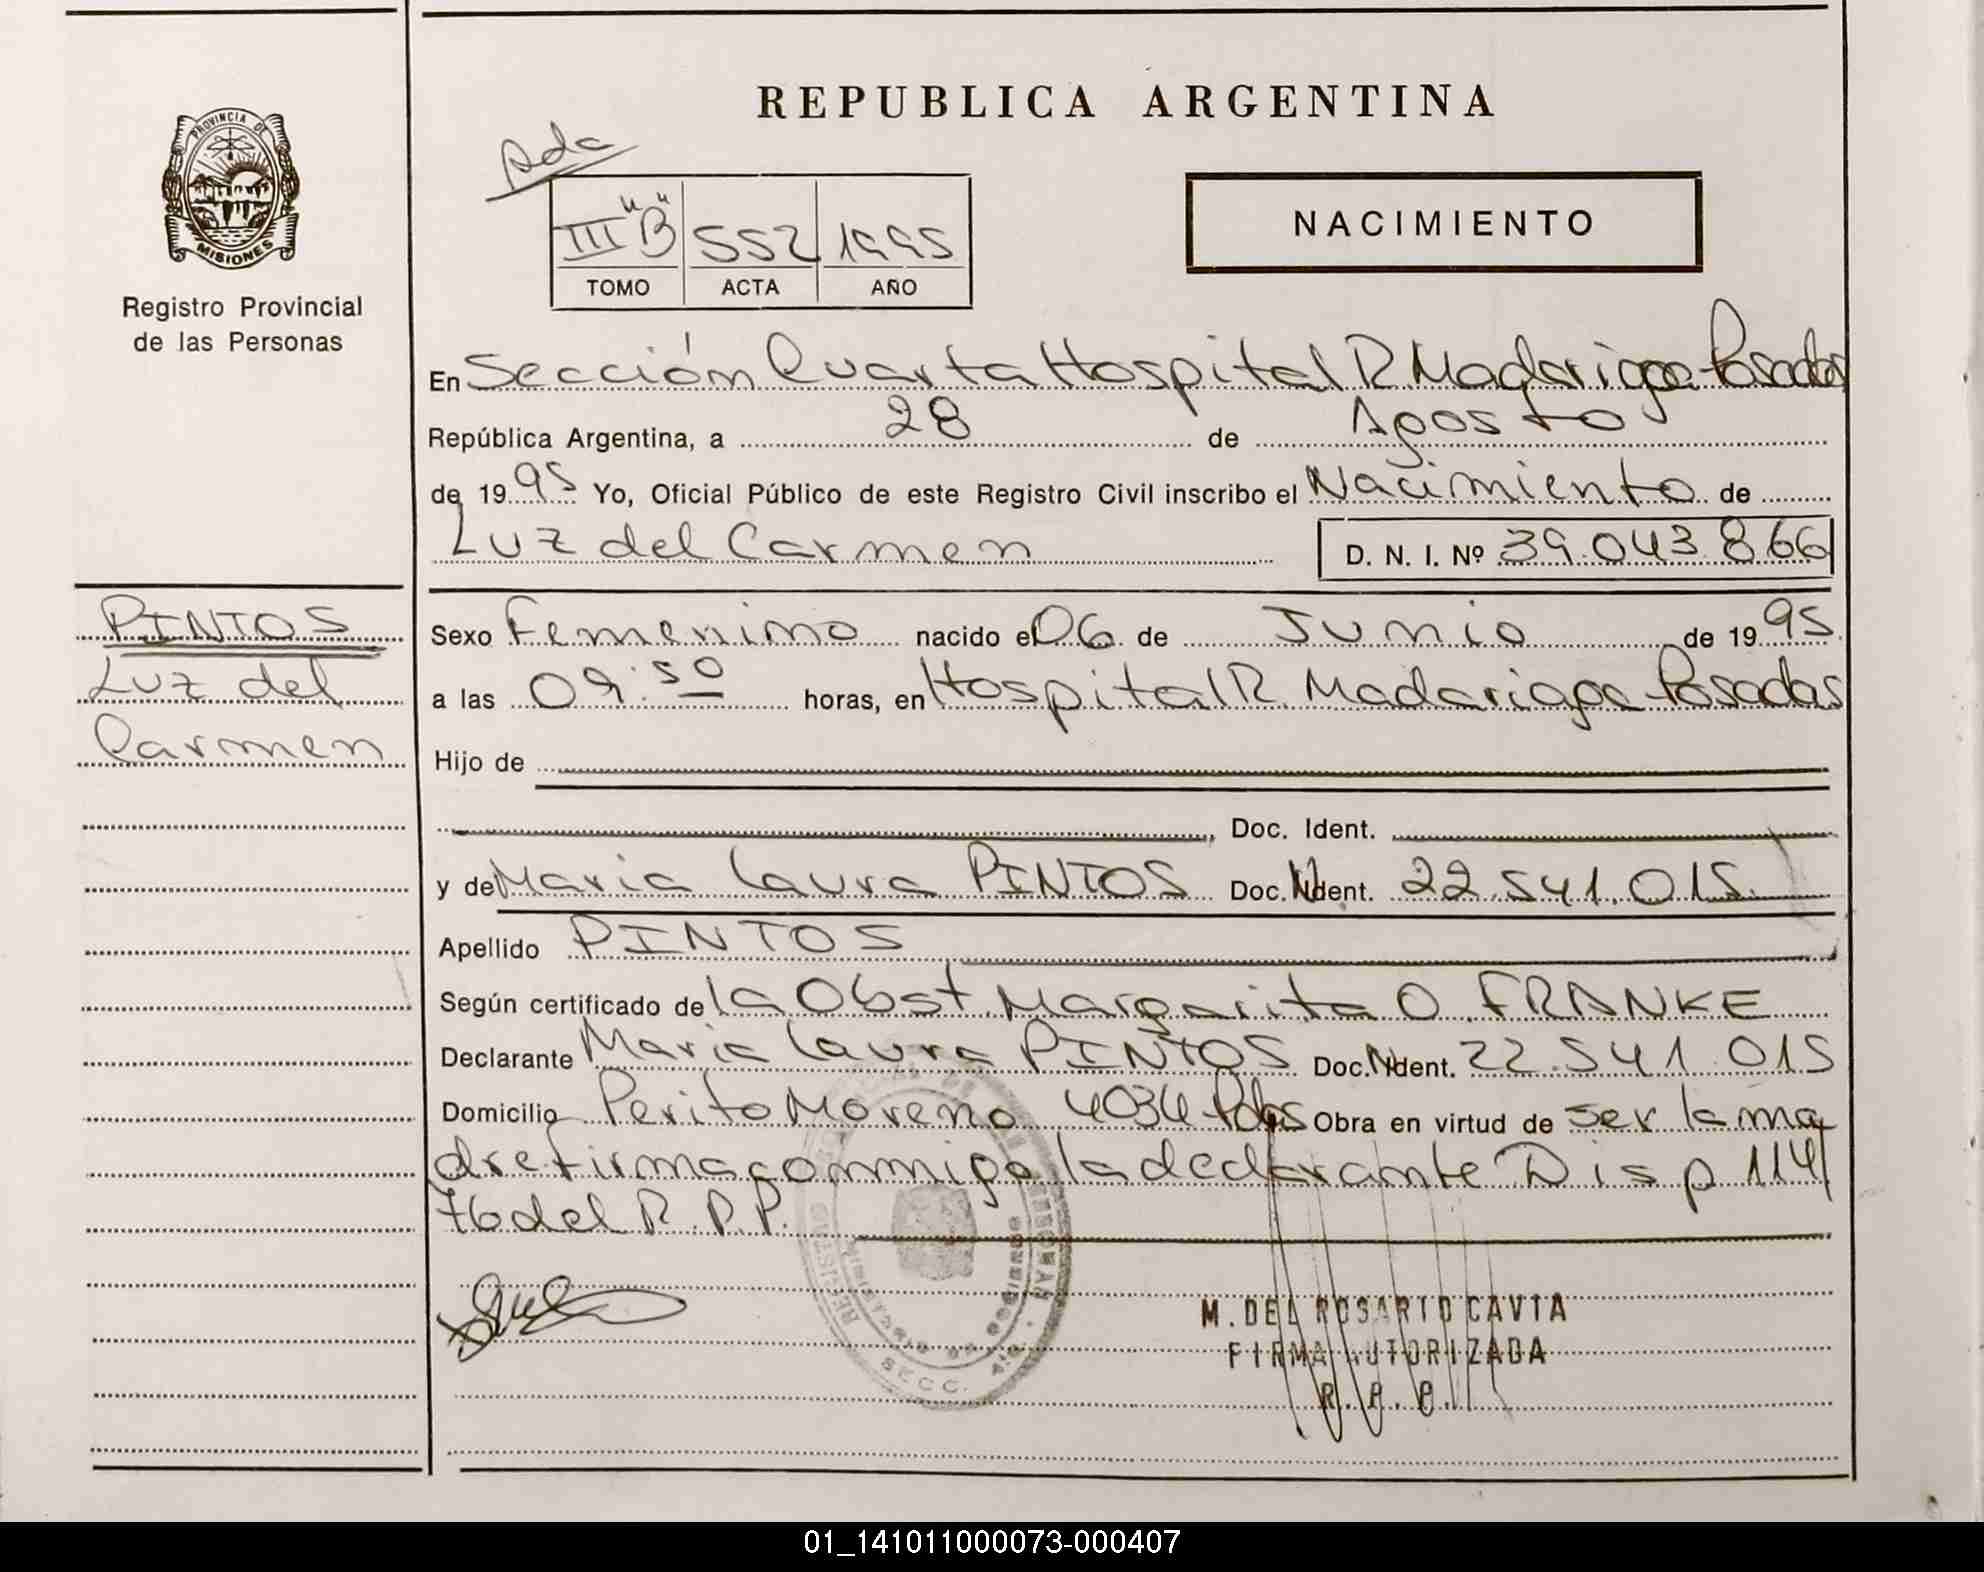 REPUBLICA ARGENTINA
PROVINCIA DE
MISIONES
Registro Provincial
de las Personas
III "B" 552 1995
TOMO ACTA AÑO
NACIMIENTO
En Sección Cuarta Hospital R. Madariaga Posadas
República Argentina, a 28 de Agosto
de 1995 Yo, Oficial Público de este Registro Civil inscribo el Nacimiento de
Luz del Carmen D. N. I. Nº 39.043.866
PINTOS
Luz del
Carmen
Sexo Femenino nacido el 06 de Junio de 1995
a las 09:50 horas, en Hospital R. Madariaga Posadas
Hijo de
Doc. Ident.
y de Maria Laura PINTOS Doc. Ident. 22.541.015
Apellido PINTOS
Según certificado de la Obst. Margarita O. FRANKE
Declarante Maria Laura PINTOS Doc. Ident. 22.541.015
Domicilio Perito Moreno 4034 Pdas Obra en virtud de ser la ma
dre firma conmigo la declarante Disp 114/
76 del R.P.P.
SECC. 4ta
M. DEL ROSARIO CAVIA
FIRMA AUTORIZADA
R. P. P.
01_141011000073-000407